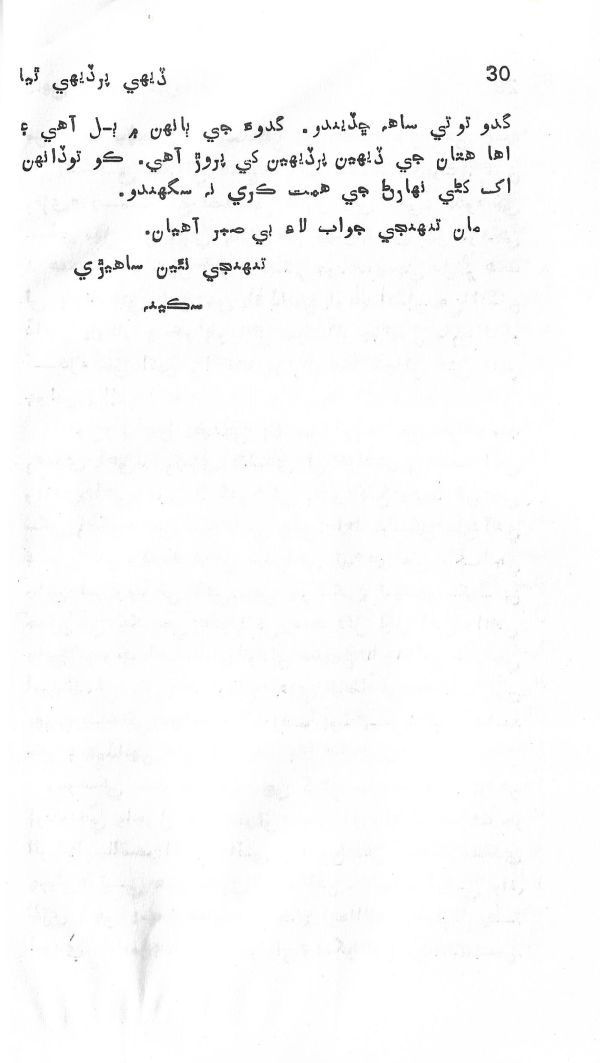 30 ڏيهي پرڏيهي ٿيا
گدو تو تي ساهه ڇڏيندو. گدوءَ جي ٻانهن ۾ ٻل آهي ۽
اها هتان جي ڏيهين پرڏيهين کي پروڙ آهي. ڪو توڏانهن
اک کڻي نهارڻ جي همت ڪري نه سگهندو.
مان تنهنجي جواب لاءِ بي صبر آهيان.
تنهنجي نئين ساهيڙي
سڪينه